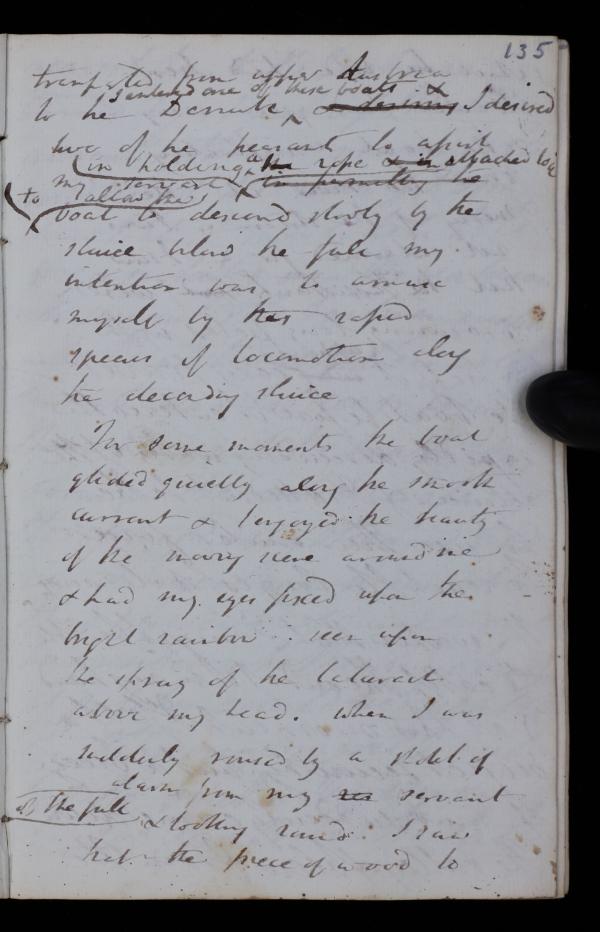 135
transported from upper Austria
I entered one of these boats &
to the Danube, & desiring I desired
two of the peasants to assist
in holding a the rope & in attached to it
my servant in permitting the
to allow the
boat to descend slowly by the
sluice below the fall my
intention was to amuse
myself by this rapid
species of locomotion along
the descending sluice
For some moments the boat
glided quietly along the smooth
current & I enjoyed the beauty
of the moving scene around me
& had my eyes fixed upon the
bright rainbow seen upon
the spray of the Cataract
above my head. when I was
suddenly roused by a shout of
alarm from my servant
of the fall
& looking round. I saw
that the piece of wood to